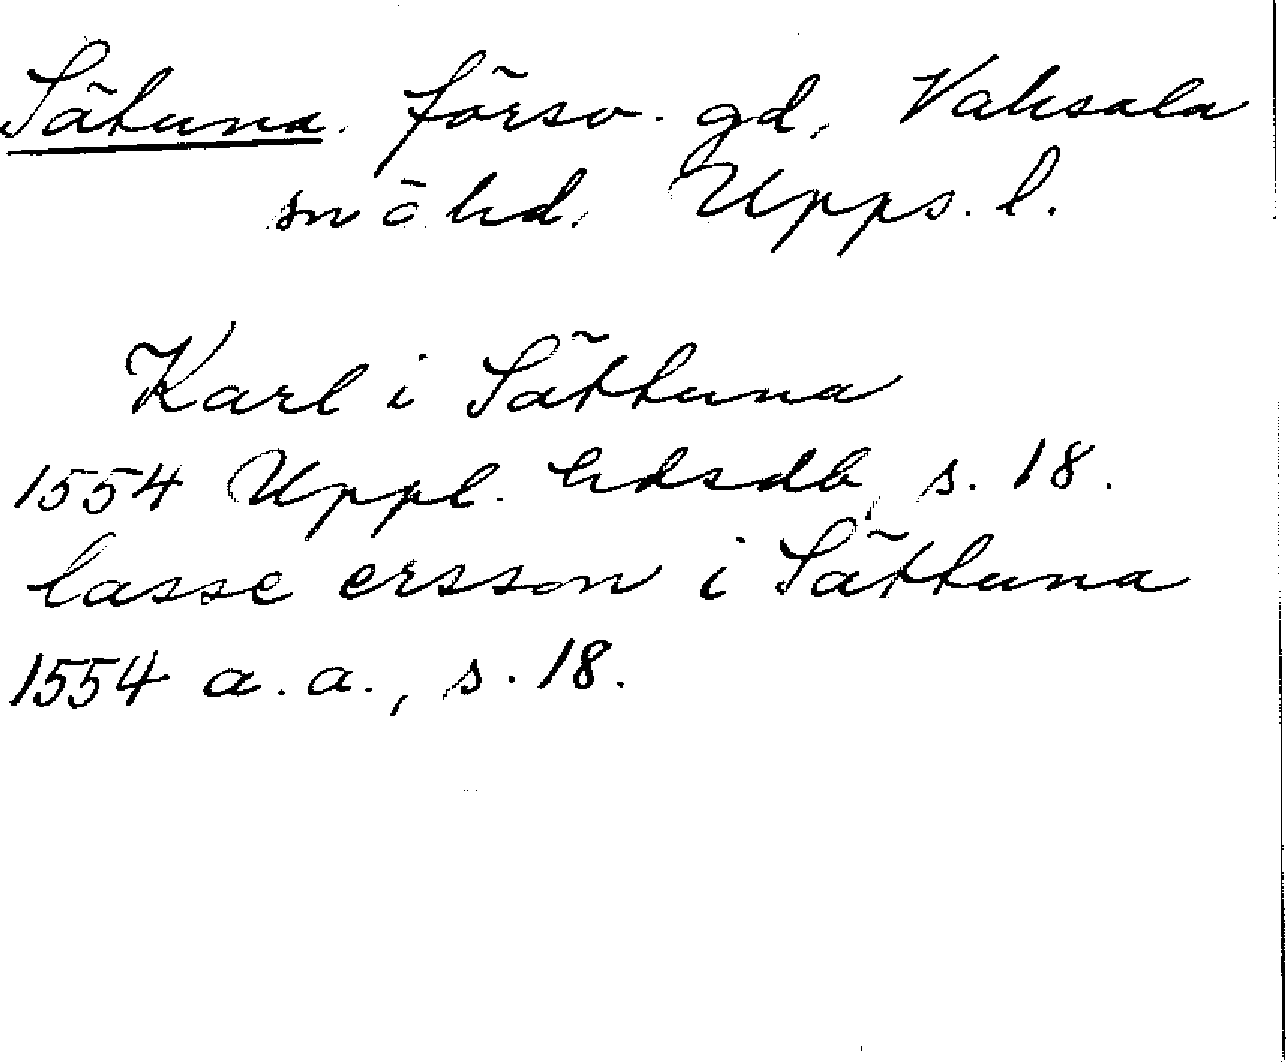 Sätuna. försv. gd. Vaksala
sn o hd. Upps. l.
Karl i Sättuna
1554 Uppl. hdsdb, s. 18.
lasse ersson i Sättuna
1554 a. a., s. 18.